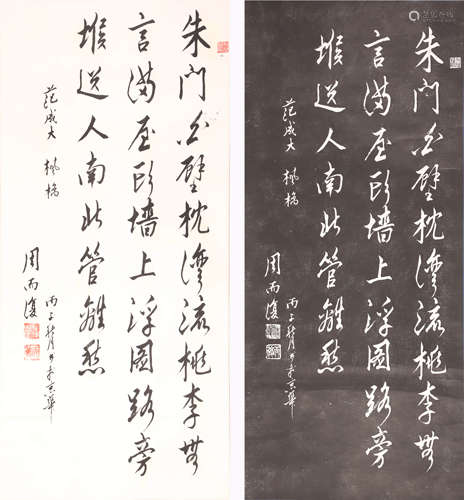 朱门白壁枕灣流桃李無
言满屋頭墙上浮圖路旁
堠送人南北管離愁
范成大 楓橋
周而復
丙子秋月书于京華
朱门白壁枕灣流桃李無
言满屋頭墙上浮圖路旁
堠送人南北管離愁
范成大 楓橋
周而復
丙子秋月书于京華